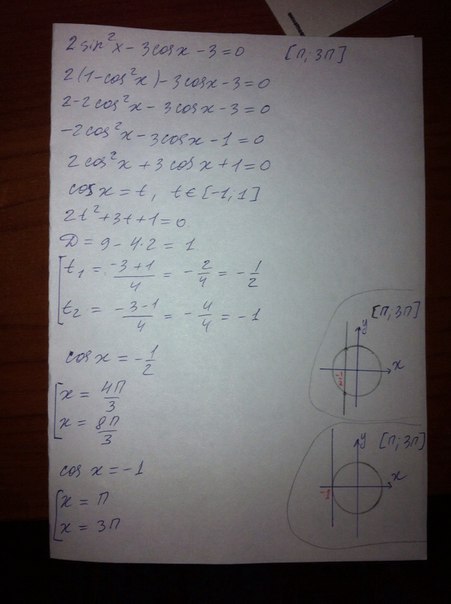 2sin²x - 3cosx - 3 = 0 [π; 3π]
2(1-cos²x) - 3cosx - 3 = 0
2-2cos²x - 3cosx - 3 = 0
-2cos²x - 3cosx - 1 = 0
2cos²x + 3cosx + 1 = 0
cosx = t, t ∈ [-1, 1]
2t² + 3t + 1 = 0
D = 9 - 4·2 = 1
t₁ = (-3+1)/4 = -2/4 = -1/2
t₂ = (-3-1)/4 = -4/4 = -1
cosx = -1/2
x = 4π/3
x = 8π/3
cosx = -1
x = π
x = 3π
[π; 3π]
y
x
-1/2
[π; 3π]
y
x
-1